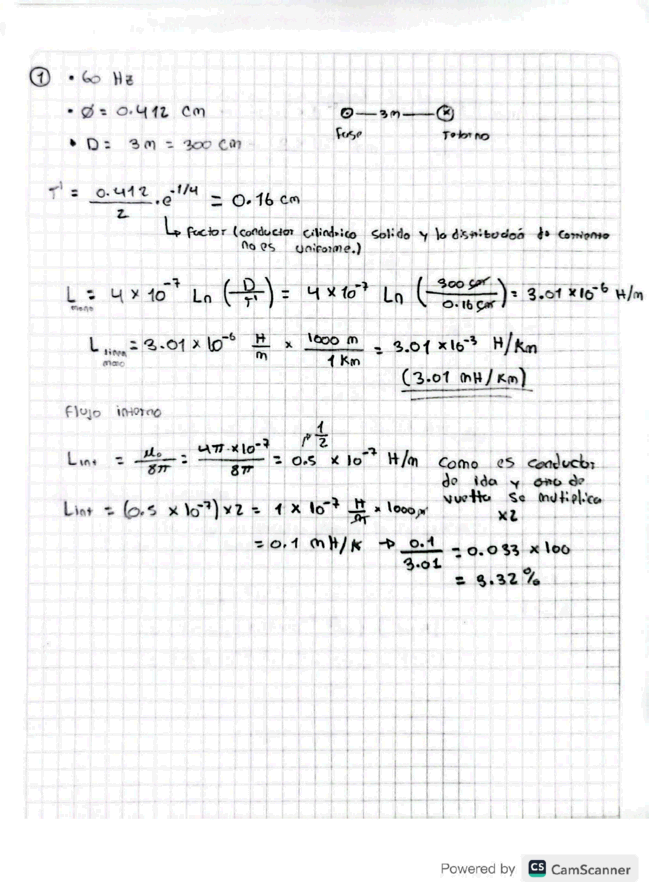 ① • 60 Hz
• Ø = 0.412 cm
• D = 3 m = 300 cm
3m
Fase Retorno
r' = 0.412/2 · e^-1/4 = 0.16 cm
↳ factor (conductor cilindrico solido y la distribución de corriente
no es uniforme.)
L = 4 × 10^-7 Ln (D/r') = 4 × 10^-7 Ln (300 cm/0.16 cm) = 3.01 × 10^-6 H/m
L linea = 3.01 × 10^-6 H/m × 1000 m/1 Km = 3.01 × 10^-3 H/Km
(3.01 mH/Km)
Flujo interno
Lint = μ₀/8π = 4π × 10^-7/8π = 0.5 × 10^-7 H/m
1/2
como es conductor
de ida y otro de
vuelta se multiplica
×2
Lint = (0.5 × 10^-7) × 2 = 1 × 10^-7 H/m × 1000 m
= 0.1 mH/K → 0.1/3.01 = 0.033 × 100
= 3.32 %
Powered by CS CamScanner